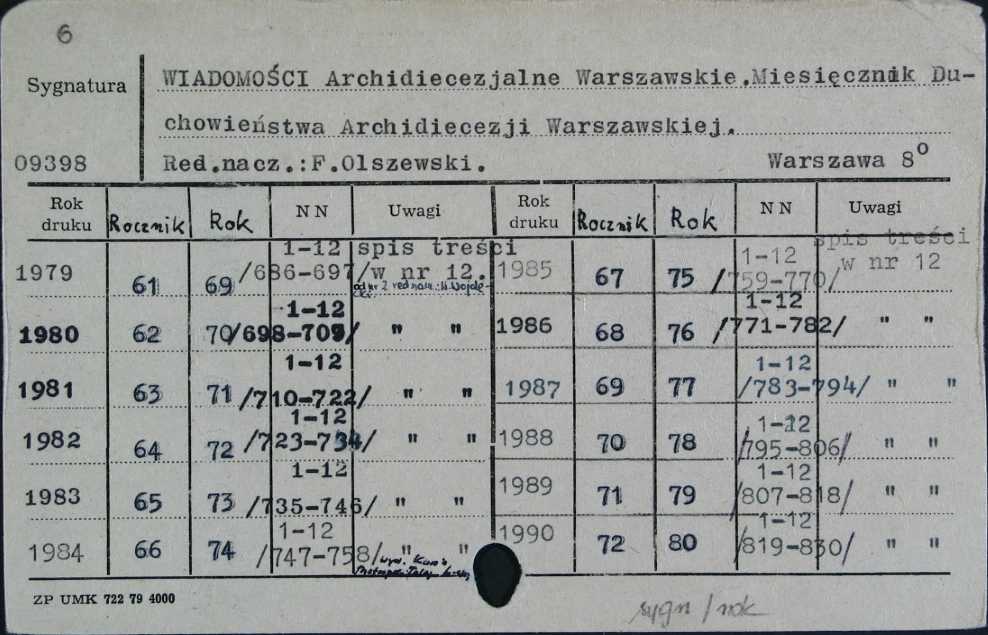 6
Sygnatura
WIADOMOŚCI Archidiecezjalne Warszawskie.Miesięcznik Du-
chowieństwa Archidiecezji Warszawskiej.
09398 Red.nacz.:F.Olszewski. Warszawa 8⁰
Rok druku Rocznik Rok NN Uwagi Rok druku Rocznik Rok NN Uwagi
1979 61 69 1-12 /686-697/ spis treści w nr 12. 1985 67 75 1-12 /759-770/ spis treści w nr 12
od nr 2 red nacz.:
1980 62 70 1-12 /698-709/ " " 1986 68 76 1-12 /771-782/ " "
1981 63 71 1-12 /710-722/ " " 1987 69 77 1-12 /783-794/ " "
1982 64 72 1-12 /723-734/ " " 1988 70 78 1-12 /795-806/ " "
1983 65 73 1-12 /735-746/ " " 1989 71 79 1-12 /807-818/ " "
1984 66 74 1-12 /747-758/ " " 1990 72 80 1-12 /819-830/ " "
wyd. Kuria
ZP UMK 722 79 4000
sygn / rok